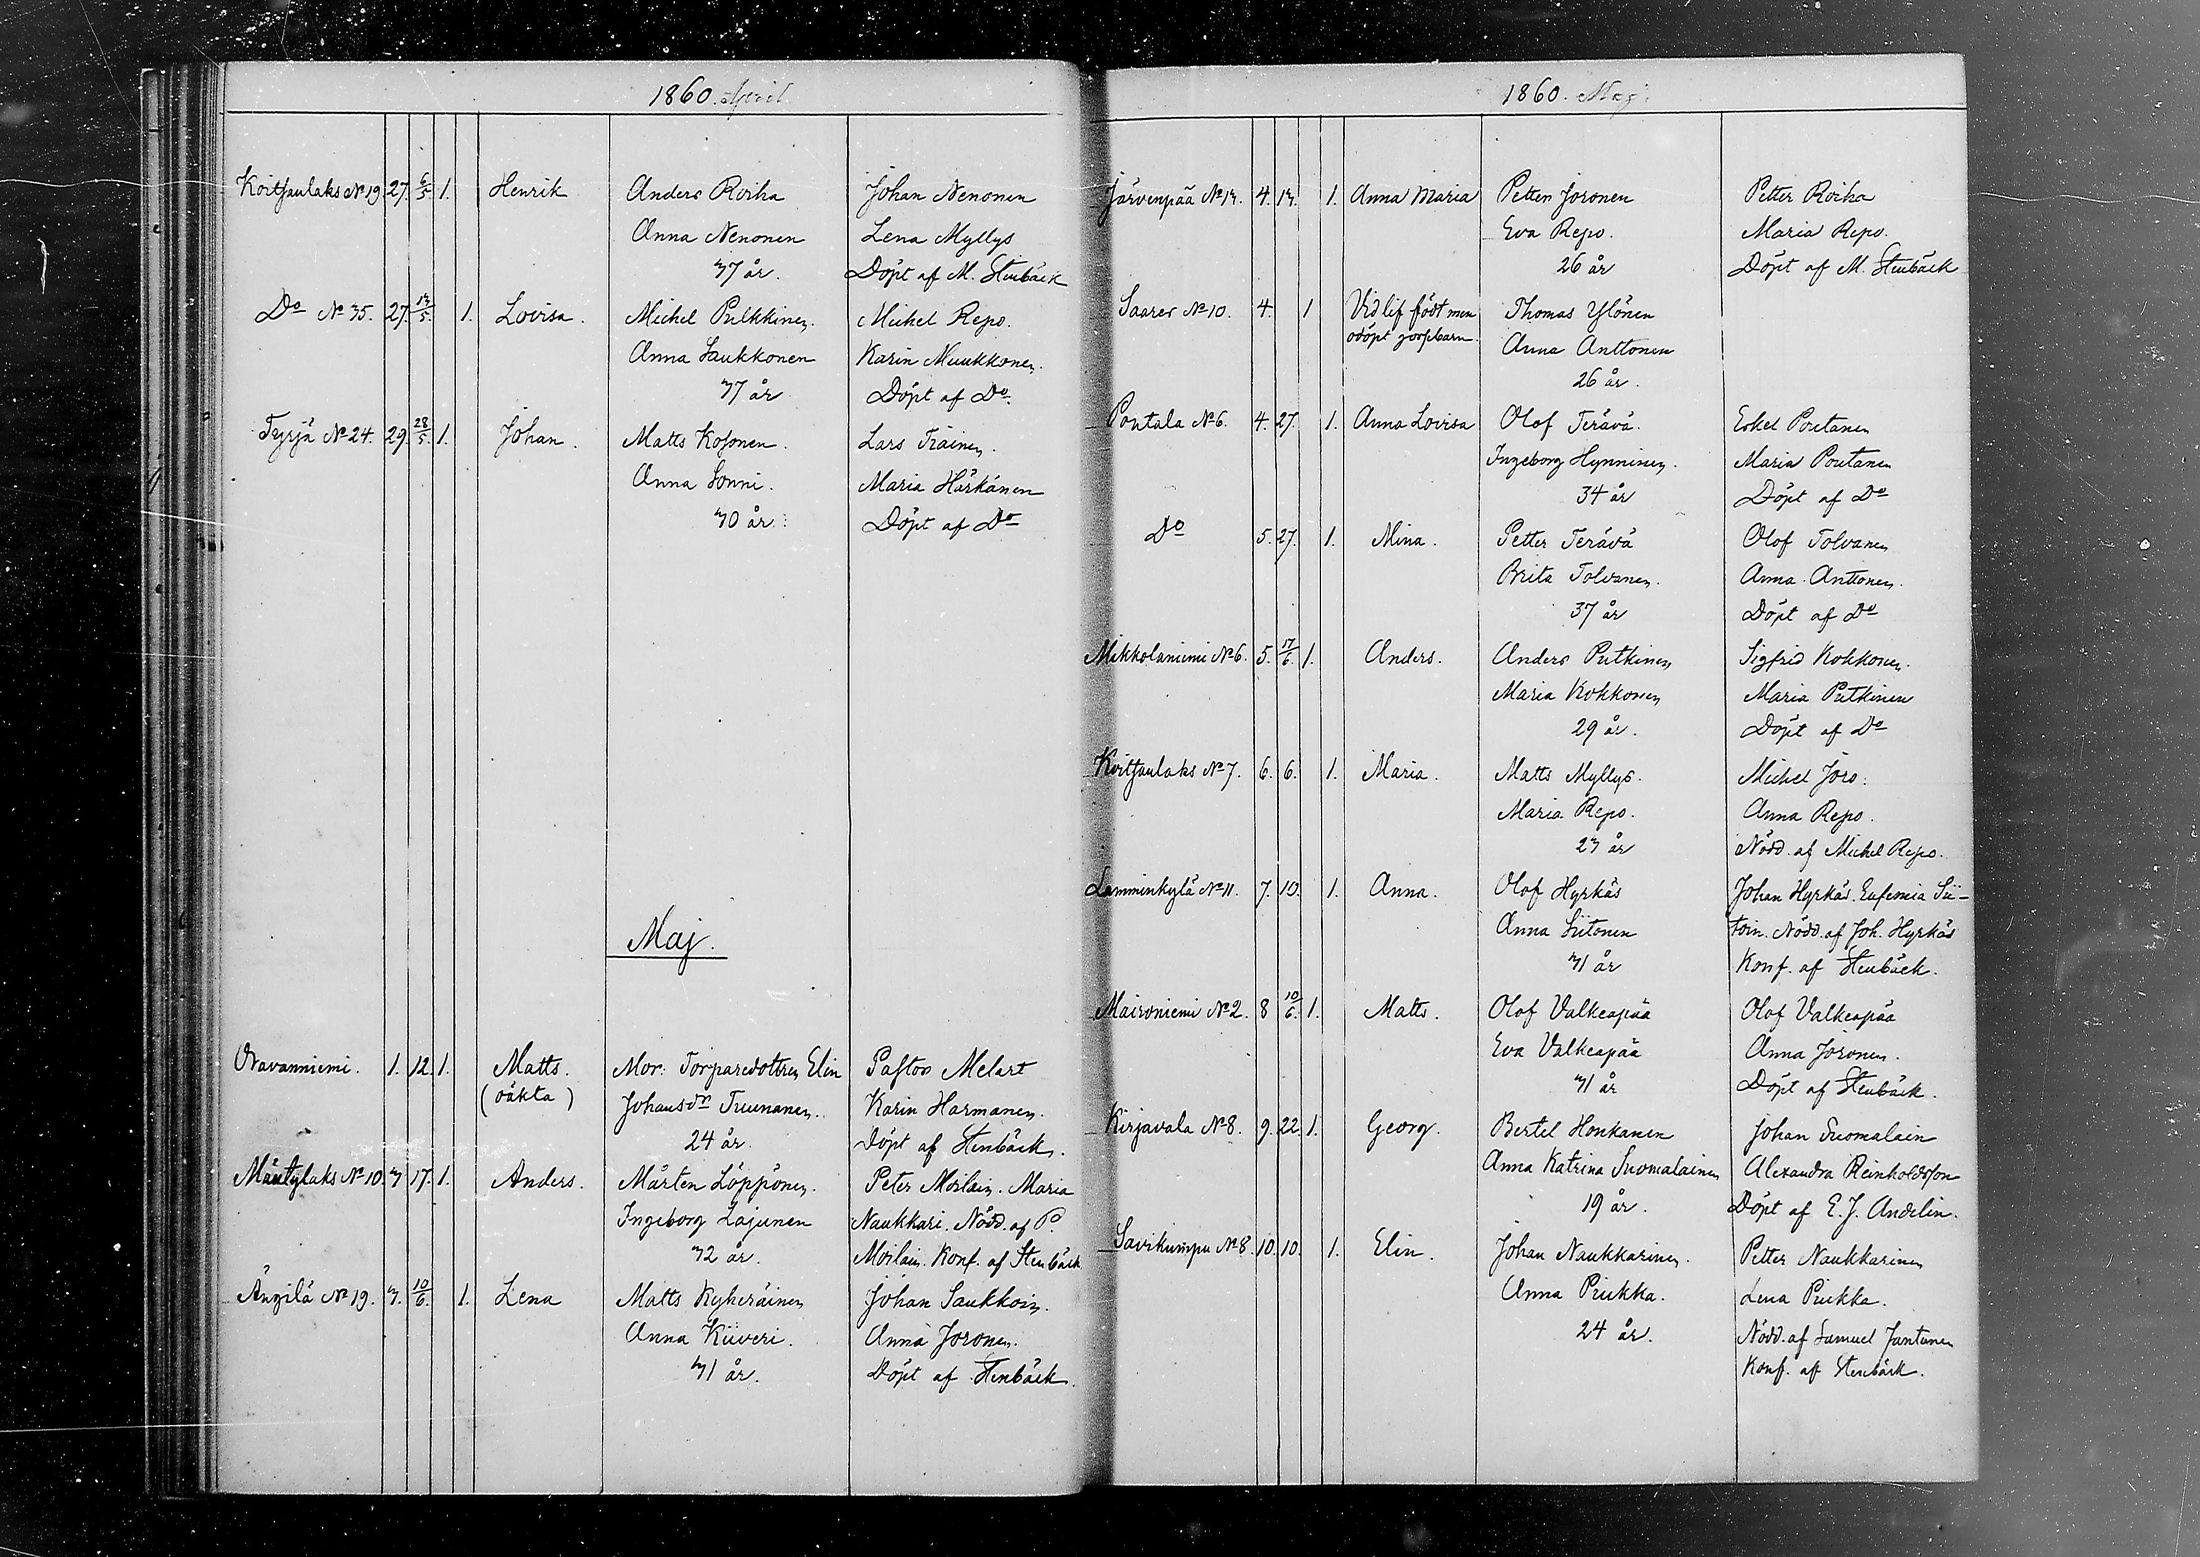 1860. April
Koitsanlaks No 19 27. 6/5 1. Henrik Anders Roiha Johan Nenonen
Anna Nenonen Lena Myllys
37 år. Döpt af M. Stenbäck
Do No 35. 27. 13/5. 1. Lovisa. Michel Pulkkinen. Michel Repo.
Anna Saukkonen Karin Muukkonen.
37 år Döpt af Do.
Tyrjä No 24. 29. 28/5. 1. Johan. Matts Kosonen. Lars Träinen.
Anna Sonni. Maria Härkänen
30 år. Döpt af Do
Maj.
Oravanniemi. 1. 12. 1. Matts. Mor: Torparedottren Elin Pastor Melart
(oäkta) Johansdr Tuunanen. Karin Harmanen.
24 år. Döpt af Stenbäck.
Mäntylaks No 10. 3 17. 1. Anders. Mårten Löppönen. Peter Moilain. Maria
Ingeborg Lajunen Naukkari. Nödd. af P.
32 år. Moilain. Konf. af Stenbäck
Änzilä No 19. 3. 10/6. 1. Lena Matts Kyheräinen Johan Saukkoin.
Anna Kiiveri. Anna Joronen.
31 år. Döpt af Stenbäck.
1860. Maj.
Järvenpää No 13. 4. 13. 1. Anna Maria Petter Joronen Petter Roiha
Eva Repo. Maria Repo.
26 år Döpt af M. Stenbäck
Saares No 10. 4. 1 Vid lif födt men Thomas Ylönen
odöpt gossebarn. Anna Anttonen
26 år.
Poutala No 6. 4. 27. 1. Anna Lovisa Olof Terävä. Eskel Poutanen
Ingeborg Hynninen. Maria Poutanen
34 år Döpt af Do
Do 5. 27. 1. Mina. Petter Terävä Olof Tolvanen
Brita Tolvanen. Anna Anttonen.
37 år Döpt af Do
Mikkolaniemi No 6. 5. 17/6. 1. Anders. Anders Putkinen Sigfrid Kokkonen.
Maria Kokkonen Maria Putkinen
29 år. Döpt af Do
Koitsanlaks No 7. 6. 6. 1. Maria. Matts Myllys. Michel Joro.
Maria Repo. Anna Repo.
23 år Nödd. af Michel Repo.
Lamminkylä No 11. 7. 10. 1. Anna. Olof Hyrkäs Johan Hyrkäs. Eufemia Sii-
Anna Siitonen toin. Nödd. af Joh. Hyrkäs
31 år Konf. af Stenbäck.
Maironiemi No 2. 8 10/6. 1. Matts. Olof Valkeapää Olof Valkeapää
Eva Valkeapää Anna Joronen.
31 år Döpt af Stenbäck.
Kirjavala No 8. 9. 22. 1. Georg. Bertel Honkanen Johan Suomalain
Anna Katrina Suomalainen Alexandra Reinholdsson
19 år. Döpt af E. J. Andelin.
Savikumpu No 8. 10. 10. 1. Elin. Johan Naukkarinen. Petter Naukkarinen
Anna Piukka. Lena Piukka.
24 år. Nödd. af Samuel Jantunen
Konf. af Stenbäck.